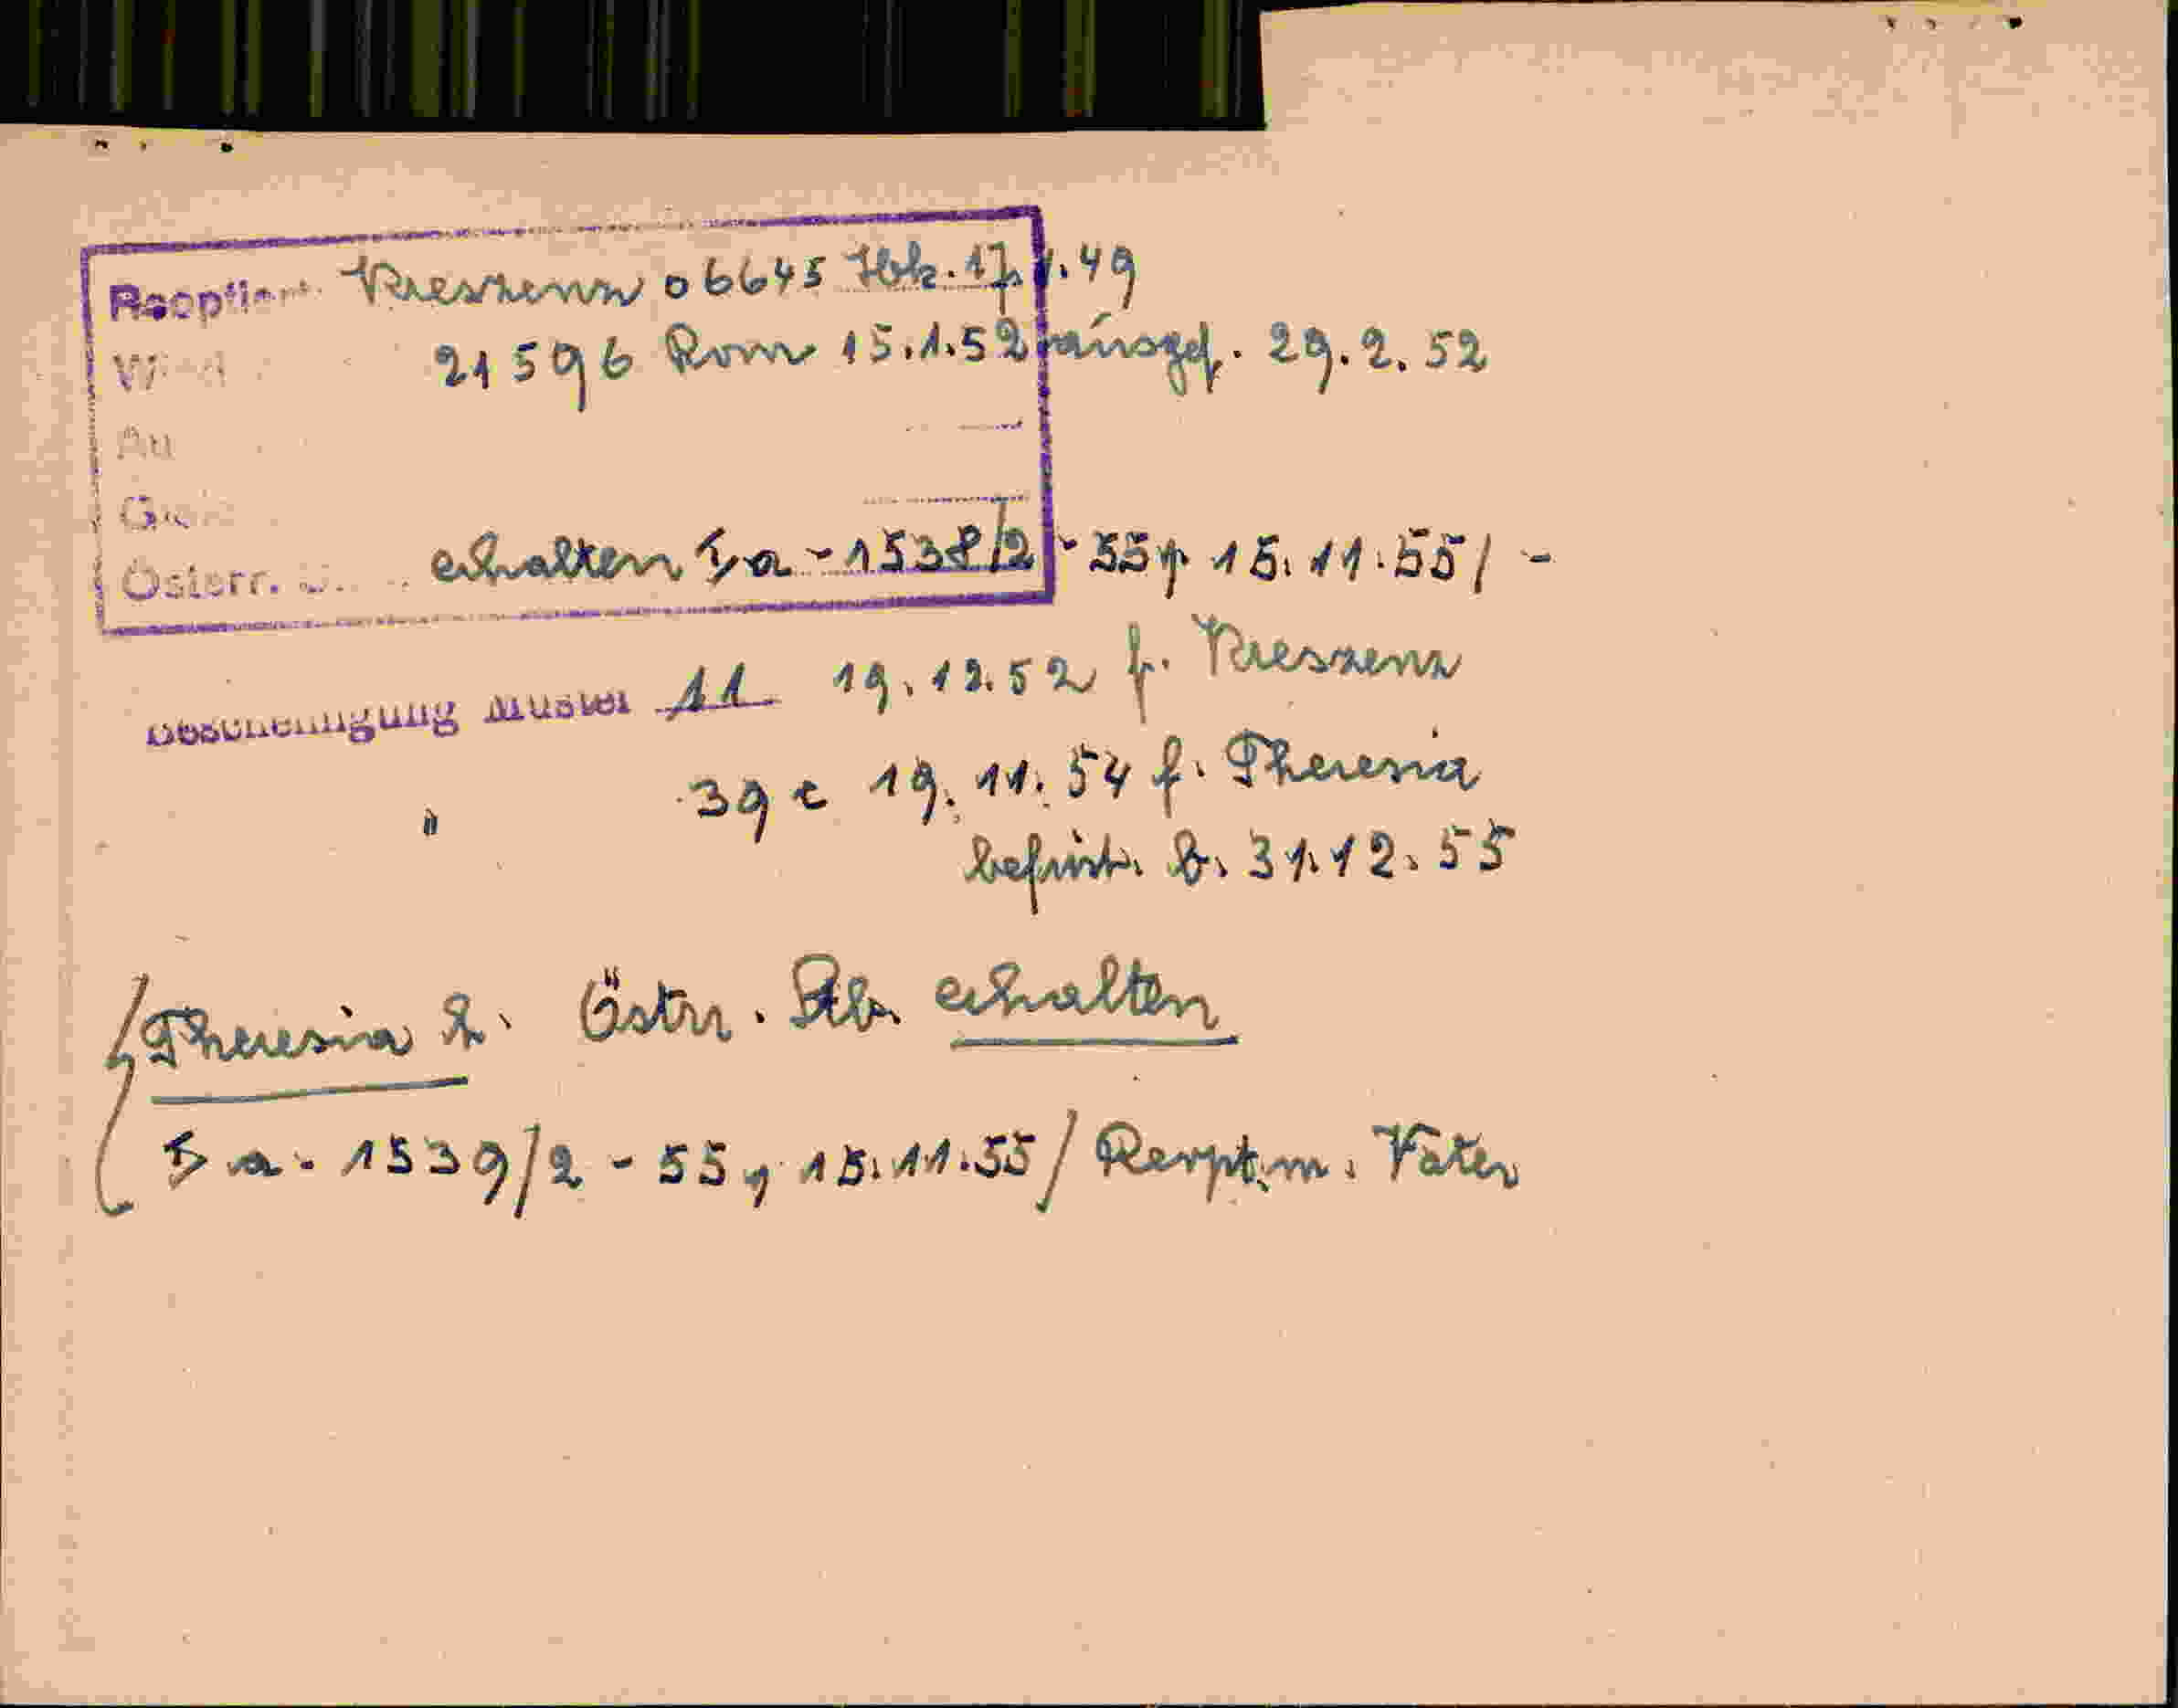 Reoptiert. Kreszenz 06645 Ibk. 17.1.49
21596 Rom 15.1.52 ausgef. 29.2.52
Au
Österr. erhalten Ia-1538/2-55 v. 15.11.55/-
Bescheinigung Muster 11 19.12.52 f. Kreszenz
" 39c 19.11.54 f. Theresia
befrist. b. 31.12.55
Theresia h. Östrr. Stb. erhalten
Ia-1539/2-55 v. 15.11.55/ Reopt. m. Vater